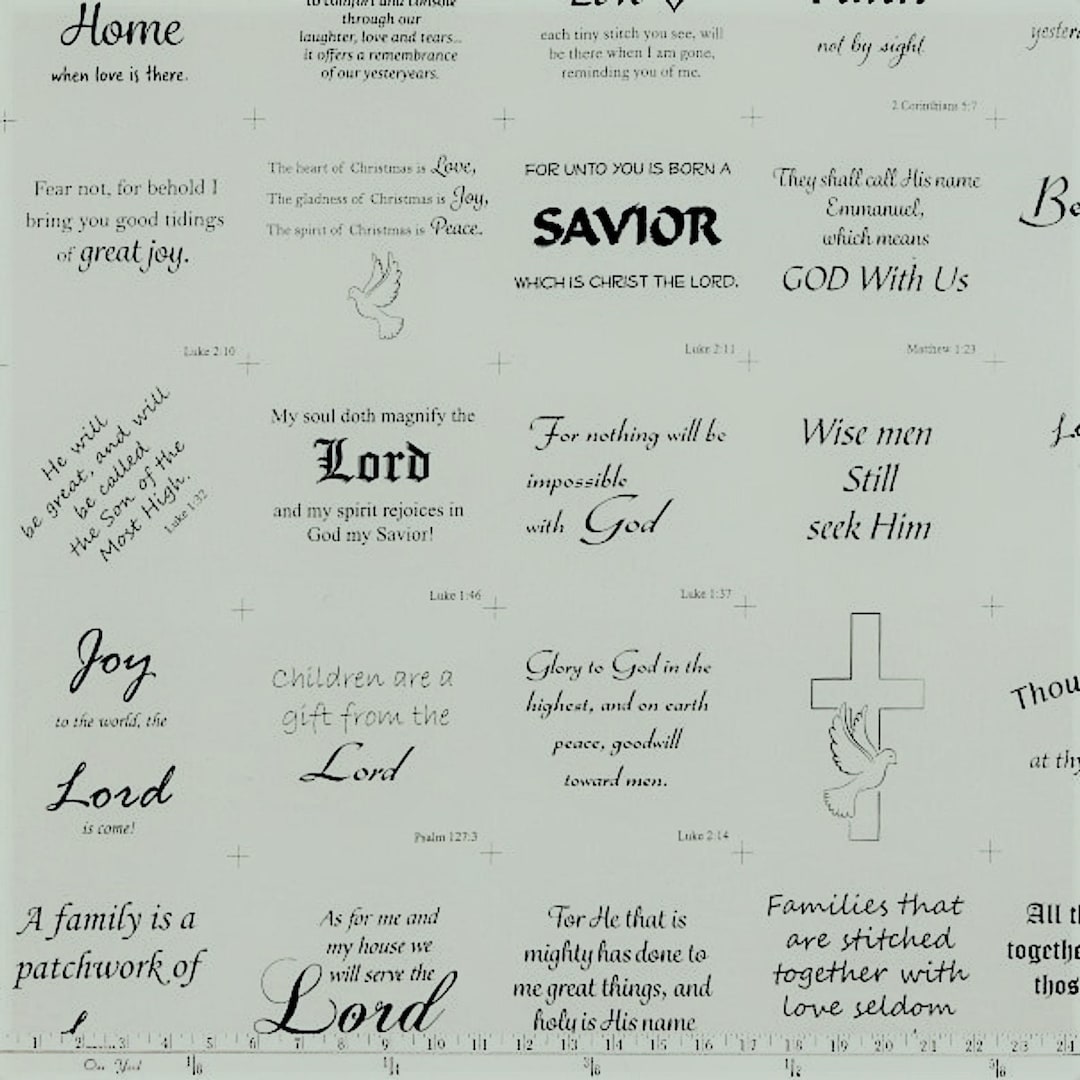 Home
when love is there.
to comfort and console
through our
laughter, love and tears...
it offers a remembrance
of our yesteryears.
each tiny stitch you see, will
be there when I am gone,
reminding you of me.
Faith
not by sight
2 Corinthians 5:7
Fear not, for behold I
bring you good tidings
of great joy.
Luke 2:10
The heart of Christmas is Love,
The gladness of Christmas is Joy,
The spirit of Christmas is Peace.
FOR UNTO YOU IS BORN A
SAVIOR
WHICH IS CHRIST THE LORD.
Luke 2:11
They shall call His name
Emmanuel,
which means
GOD With Us
Matthew 1:23
He will
be great, and will
be called
the Son of the
Most High.
Luke 1:32
My soul doth magnify the
Lord
and my spirit rejoices in
God my Savior!
Luke 1:46
For nothing will be
impossible
with God
Luke 1:37
Wise men
Still
seek Him
Joy
to the world, the
Lord
is come!
Children are a
gift from the
Lord
Psalm 127:3
Glory to God in the
highest, and on earth
peace, goodwill
toward men.
Luke 2:14
Thou
at thy
A family is a
patchwork of
As for me and
my house we
will serve the
Lord
For He that is
mighty has done to
me great things, and
holy is His name
Families that
are stitched
together with
love seldom
All th
togethe
thos
1 2 3 4 5 6 7 8 9 10 11 12 13 14 15 16 17 18 19 20 21 22 23 24
1/8 1/4 3/8 1/2 5/8